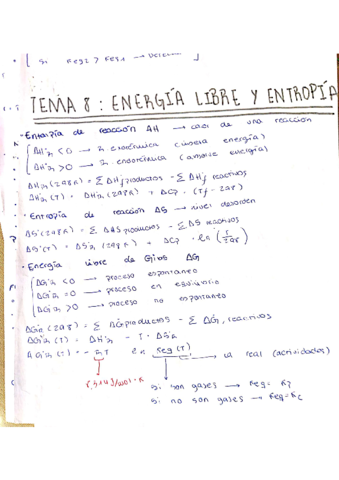 [ Si Keq2 > Keq1 →
TEMA 8: ENERGÍA LIBRE Y ENTROPÍA
· Entalpía de reacción ΔH → calor de una reacción
ΔHr < 0 → R. exotérmica (libera energía)
ΔHr > 0 → R. endotérmica (absorbe energía)
ΔHr (298K) = ∑ΔHf productos - ∑ΔHf reactivos
ΔHr (T) = ΔHr (298K) + ΔCp · (Tf - 298)
· Entropía de reacción ΔS → nivel desorden
ΔSr (298K) = ∑ ΔS productos - ∑ΔS reactivos
ΔSr (T) = ΔSr (298K) + ΔCp · ln (T/298)
· Energía libre de Gibbs ΔG
ΔGr < 0 → proceso espontaneo
ΔGr = 0 → proceso en equilibrio
ΔGr > 0 → proceso no espontaneo
ΔGr (298) = ∑ ΔG productos - ∑ΔG, reactivos
ΔGr (T) = ΔHr - T · ΔSr
ΔGr (T) = - RT ln Keq (T) → la real (actividades)
8,314 J/mol·K
si son gases → Keq = Kp
si no son gases → Keq = Kc